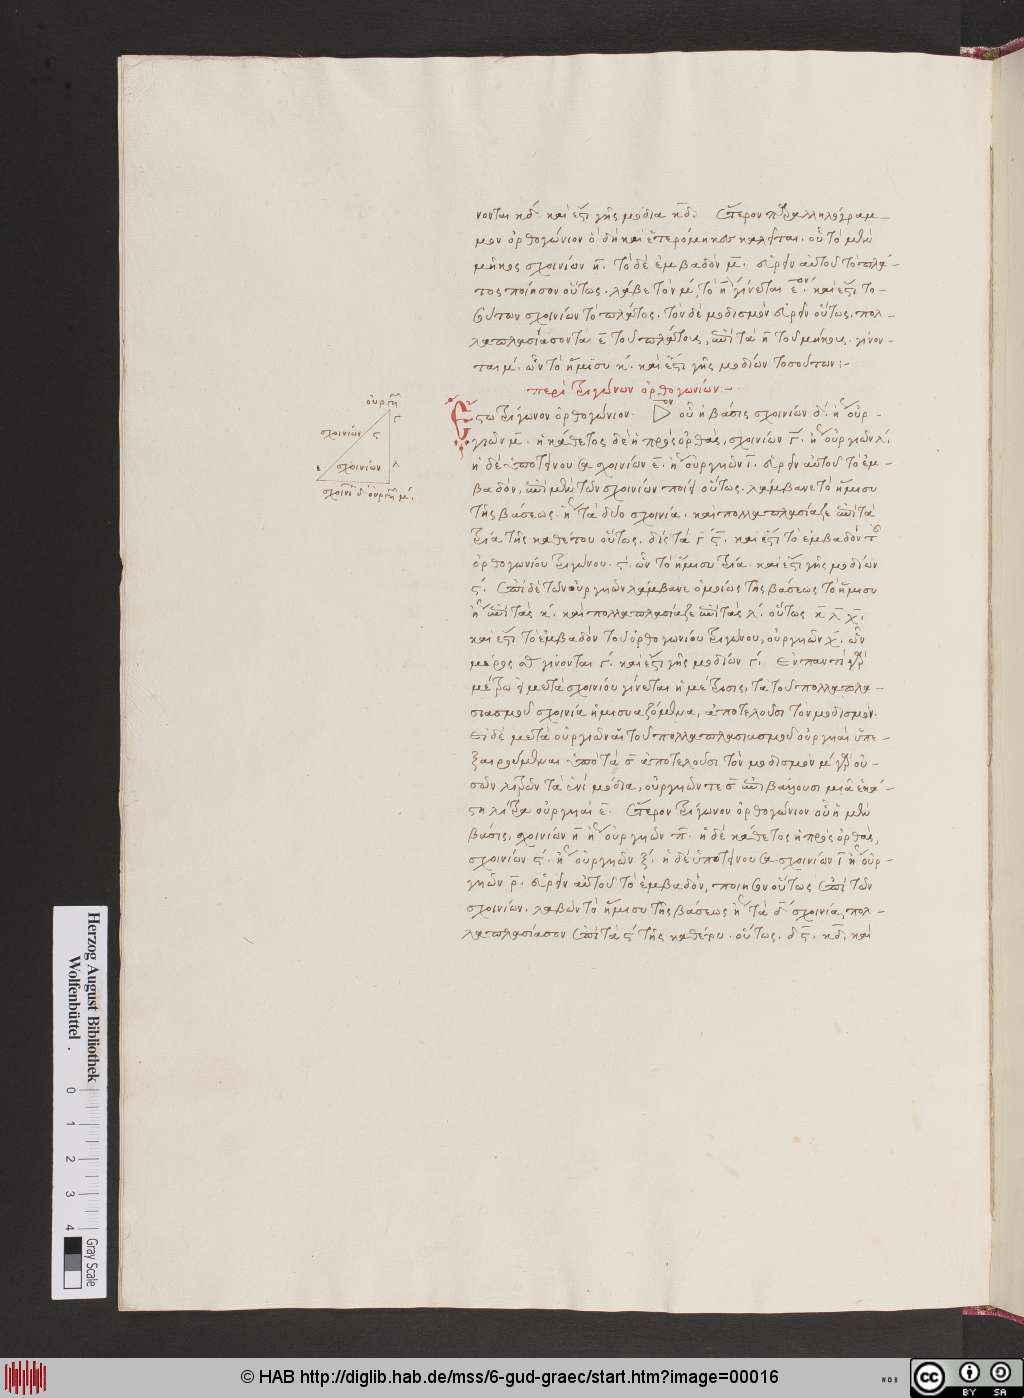 νονται κδ΄ καὶ ἔστι γῆς μόδια κδ. Ἕτερον παραλληλόγραμ-
μον ὀρθογώνιον ὃ δὴ καὶ ἑτερόμηκες καλεῖται. οὗ τὸ μὲν
μῆκος σχοινίων η. τὸ δὲ ἐμβαδὸν μ. εὑρεῖν αὐτοῦ τὸ πλά-
τος ποίησον οὕτως. λάβε τὸν μ΄, τὸ η΄ γίνεται ε. καὶ ἔστι το-
σούτων σχοινίων τὸ πλάτος. τὸν δὲ μοδισμὸν εὑρεῖν οὕτως. πολ-
λαπλασίασον τὰ ε τοῦ πλάτους, ἐπὶ τὰ η τοῦ μήκους. γίνον-
ται μ΄. ὧν τὸ ἥμισυ κ΄. καὶ ἔστι γῆς μοδίων τοσούτων:-
περὶ τριγώνων ὀρθογωνίων:-
Ἔστω τρίγωνον ὀρθογώνιον. οὗ ἡ βάσις σχοινίων δ΄. ἢ οὐρ-
γιῶν μ. ἡ κάθετος δὲ ἡ πρὸς ὀρθάς, σχοινίων γ. ἢ οὐργιῶν λ΄.
ἡ δὲ ὑποτείνουσα σχοινίων ε. ἢ οὐργιῶν ν. εὑρεῖν αὐτοῦ τὸ ἐμ-
βαδόν. ἐπὶ μὲν τῶν σχοινίων ποίει οὕτως. λάμβανε τὸ ἥμισυ
τῆς βάσεως. ἢ τὰ δύο σχοινία. καὶ πολλαπλασίαζε ἐπὶ τὰ
τρία τῆς καθέτου οὕτως. δὶς τὰ γ ϛ. καὶ ἔστι τὸ ἐμβαδὸν τοῦ
ὀρθογωνίου τριγώνου. ϛ. ὧν τὸ ἥμισυ τρία. καὶ ἔστι γῆς μοδίων
Ἐπὶ δὲ τῶν οὐργιῶν λάμβανε ὁμοίως τῆς βάσεως τὸ ἥμισυ
ἐπὶ τὰς κ΄. καὶ πολλαπλασίαζε ἐπὶ τὰς λ΄. οὕτως κ λ χ.
καὶ ἔστι τὸ ἐμβαδὸν τοῦ ὀρθογωνίου τριγώνου, οὐργιῶν χ. ὧν
μέρος γίνονται γ΄. καὶ ἔστι γῆς μοδίων γ΄. Ἐν παντὶ γὰρ
μέτρῳ μετὰ σχοινίου γίνεται ἡ μέτρησις, τὰ τοῦ πολλαπλα-
σιασμοῦ σχοινία ἡμισυαζόμενα, ἀποτελοῦσι τὸν μοδισμόν.
Εἰ δὲ μετὰ οὐργιῶν αἱ τοῦ πολλαπλασιασμοῦ οὐργιαὶ ὑπε-
ξαιρούμεναι ὑπὸ τὰ σ ἀποτελοῦσι τὸν μοδισμὸν μ΄ γὰρ οὐ-
σῶν λιτρῶν τὰ ἑνὶ μόδια, οὐργιῶν τε σ ἐπιβάλλουσι μιᾷ ἑκά-
στῃ λίτρα οὐργιαὶ ε. Ἕτερον τρίγωνον ὀρθογώνιον οὗ ἡ μὲν
βάσις, σχοινίων η ἢ οὐργιῶν π. ἡ δὲ κάθετος ἡ πρὸς ὀρθάς,
σχοινίων ϛ. ἢ οὐργιῶν ξ΄. ἡ δὲ ὑποτείνουσα σχοινίων ι ἢ οὐρ-
γιῶν ρ. εὑρεῖν αὐτοῦ τὸ ἐμβαδόν, ποίησον οὕτως ἐπὶ τῶν
σχοινίων. λαβὼν τὸ ἥμισυ τῆς βάσεως ἢ τὰ δ σχοινία, πολ-
λαπλασίασον ἐπὶ τὰ ϛ τῆς καθέτου. οὕτως. δ ϛ. κδ. καὶ
σχοινίων
σχοινίων
Herzog August Bibliothek
Wolfenbüttel
0 1 2 3 4
Gray Scale
© HAB http://diglib.hab.de/mss/6-gud-graec/start.htm?image=00016
cc BY SA